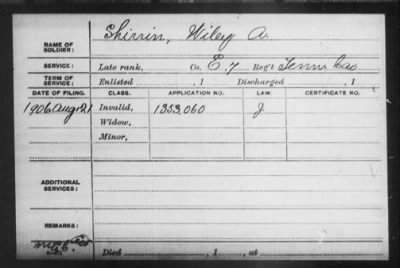 NAME OF SOLDIER: Shirrin, Wiley A.
SERVICE: Late rank, Co. E. 7 Reg't Tenn Cav
TERM OF SERVICE: Enlisted , 1 Discharged , 1
DATE OF FILING. CLASS. APPLICATION NO. LAW. CERTIFICATE NO.
1906 Aug 21 Invalid, 1353,060 J.
Widow,
Minor,
ADDITIONAL SERVICES:
REMARKS:
Died , 1 , at